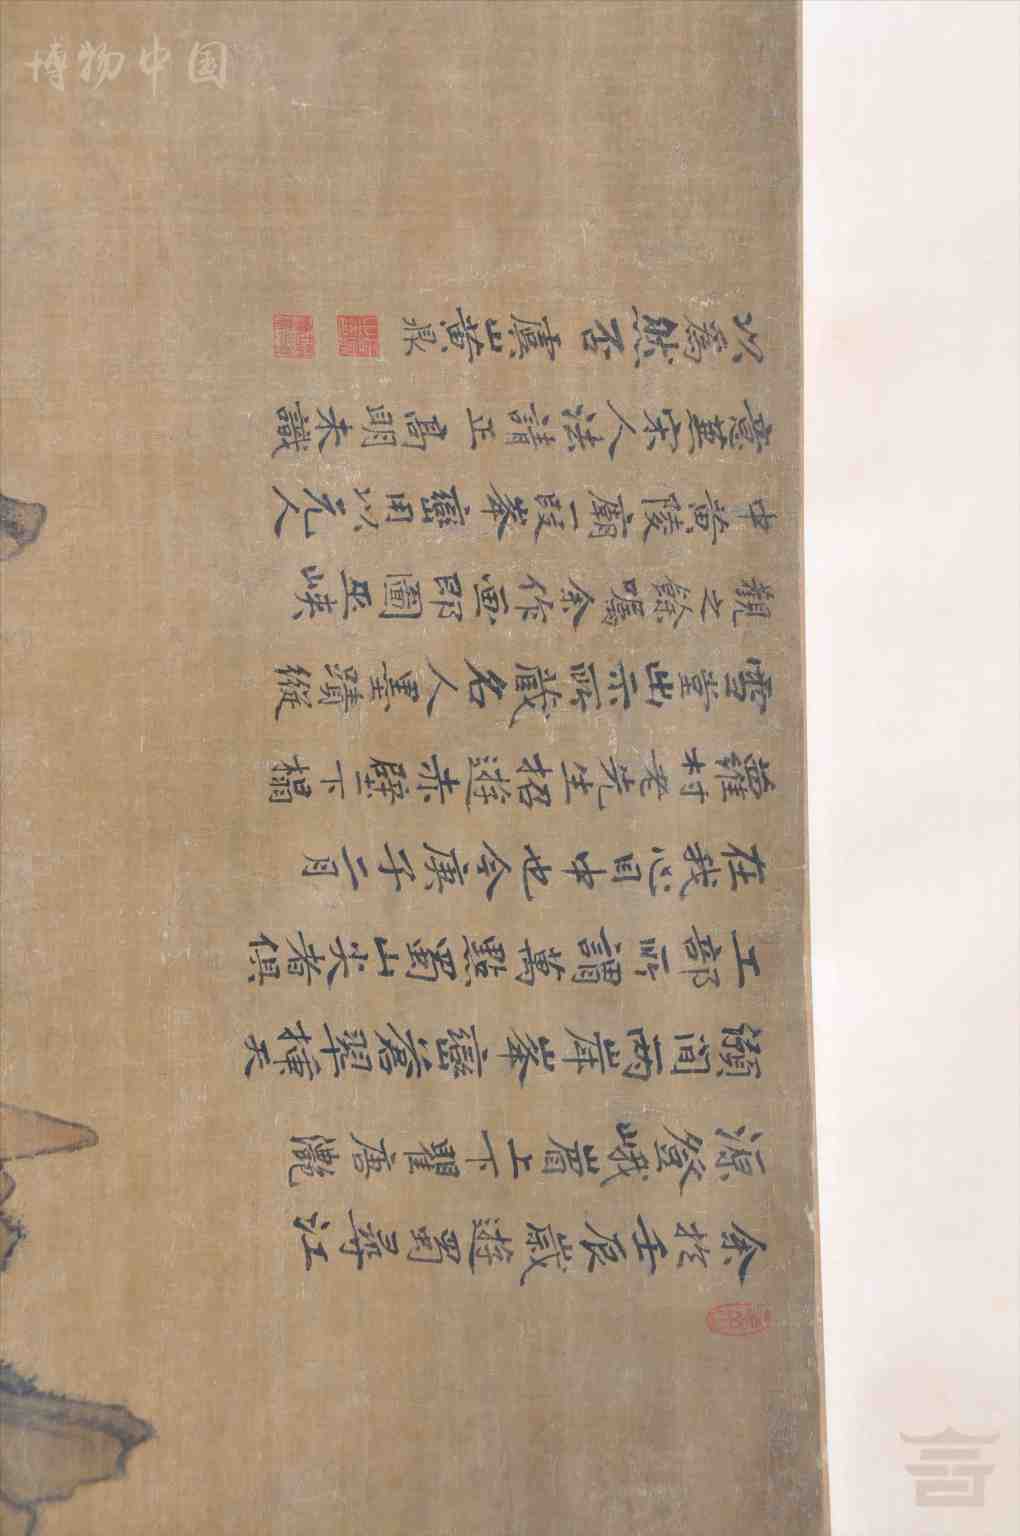 博物中国
余於壬辰歲遊蜀尋江
源發峨嵋上下瞿唐灔
澦間兩崖山峯巒蒼翠插天
工部所謂萬點蜀山尖者俱
在我心目中也今庚子二月
蘿村老先生招遊赤壁下榻
雪堂出示所藏名人墨蹟縱
觀之餘囑余作畫即圖巫峽
中黃陵廟一段峯巒用以元人
意兼宋人法請正高明未識
以為然否虞山黃鼎